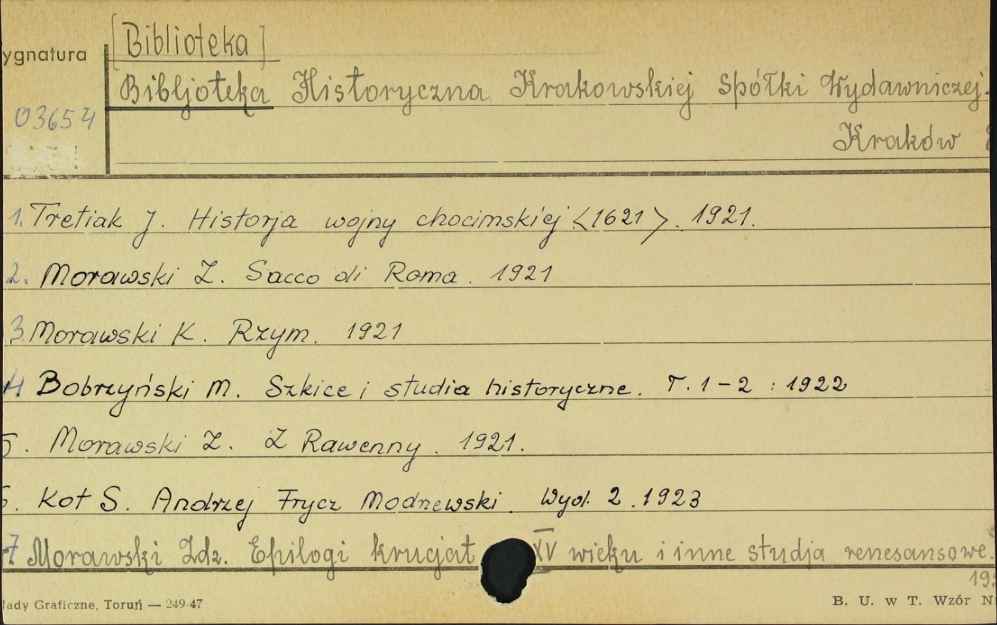 [Biblioteka]
ygnatura
Bibljoteka Historyczna Krakowskiej Spółki Wydawniczej.
03654
Kraków
1. Tretiak J. Historja wojny chocimskiej <1621>. 1921.
2. Morawski Z. Sacco di Roma. 1921
3 Morawski K. Rzym. 1921
4 Bobrzyński M. Szkice i studia historyczne. T. 1-2 : 1922
5. Morawski Z. Z Rawenny. 1921.
6. Kot S. Andrzej Frycz Modrzewski. Wyd. 2. 1923
7 Morawski Zdz. Epilogi krucjat XV wieku i inne studja renesansowe.
192
łady Graficzne, Toruń — 249-47
B. U. w T. Wzór N